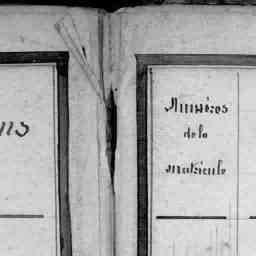 ns
Numéros
de la
matricule